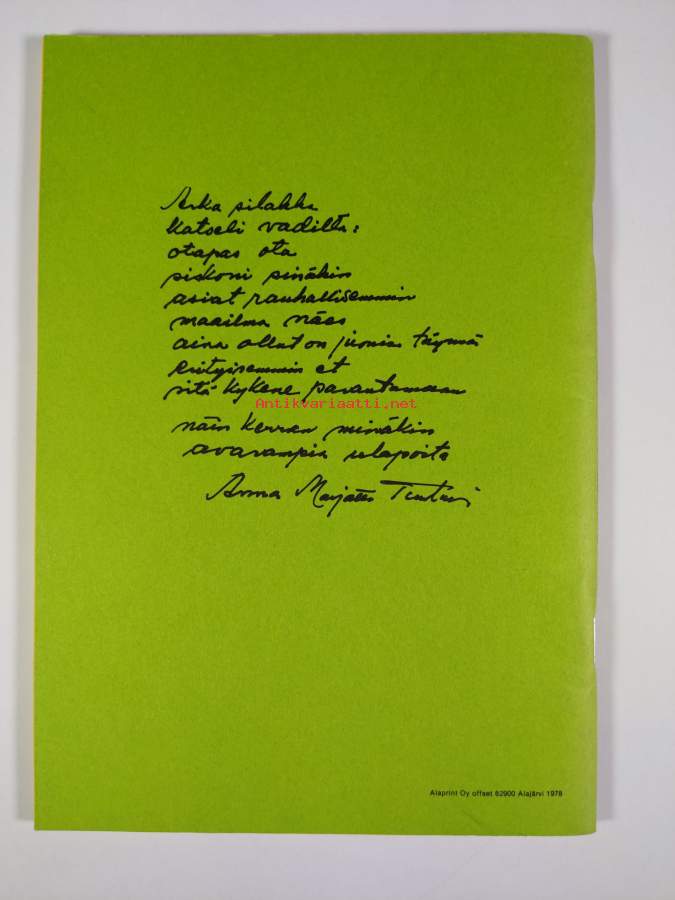 Arka silakka
katseli vadilta:
otapas ota
siskoni sinäkin
asiat rauhallisemmin
maailma näes
aina ollut on juonia täynnä
erityisemmin et
sitä kykene parantamaan
Antikvariaatti.net
näin kerran minäkin
avarampia ulapoita
Anna Marjatta
Alaprint Oy offset 62900 Alajärvi 1978